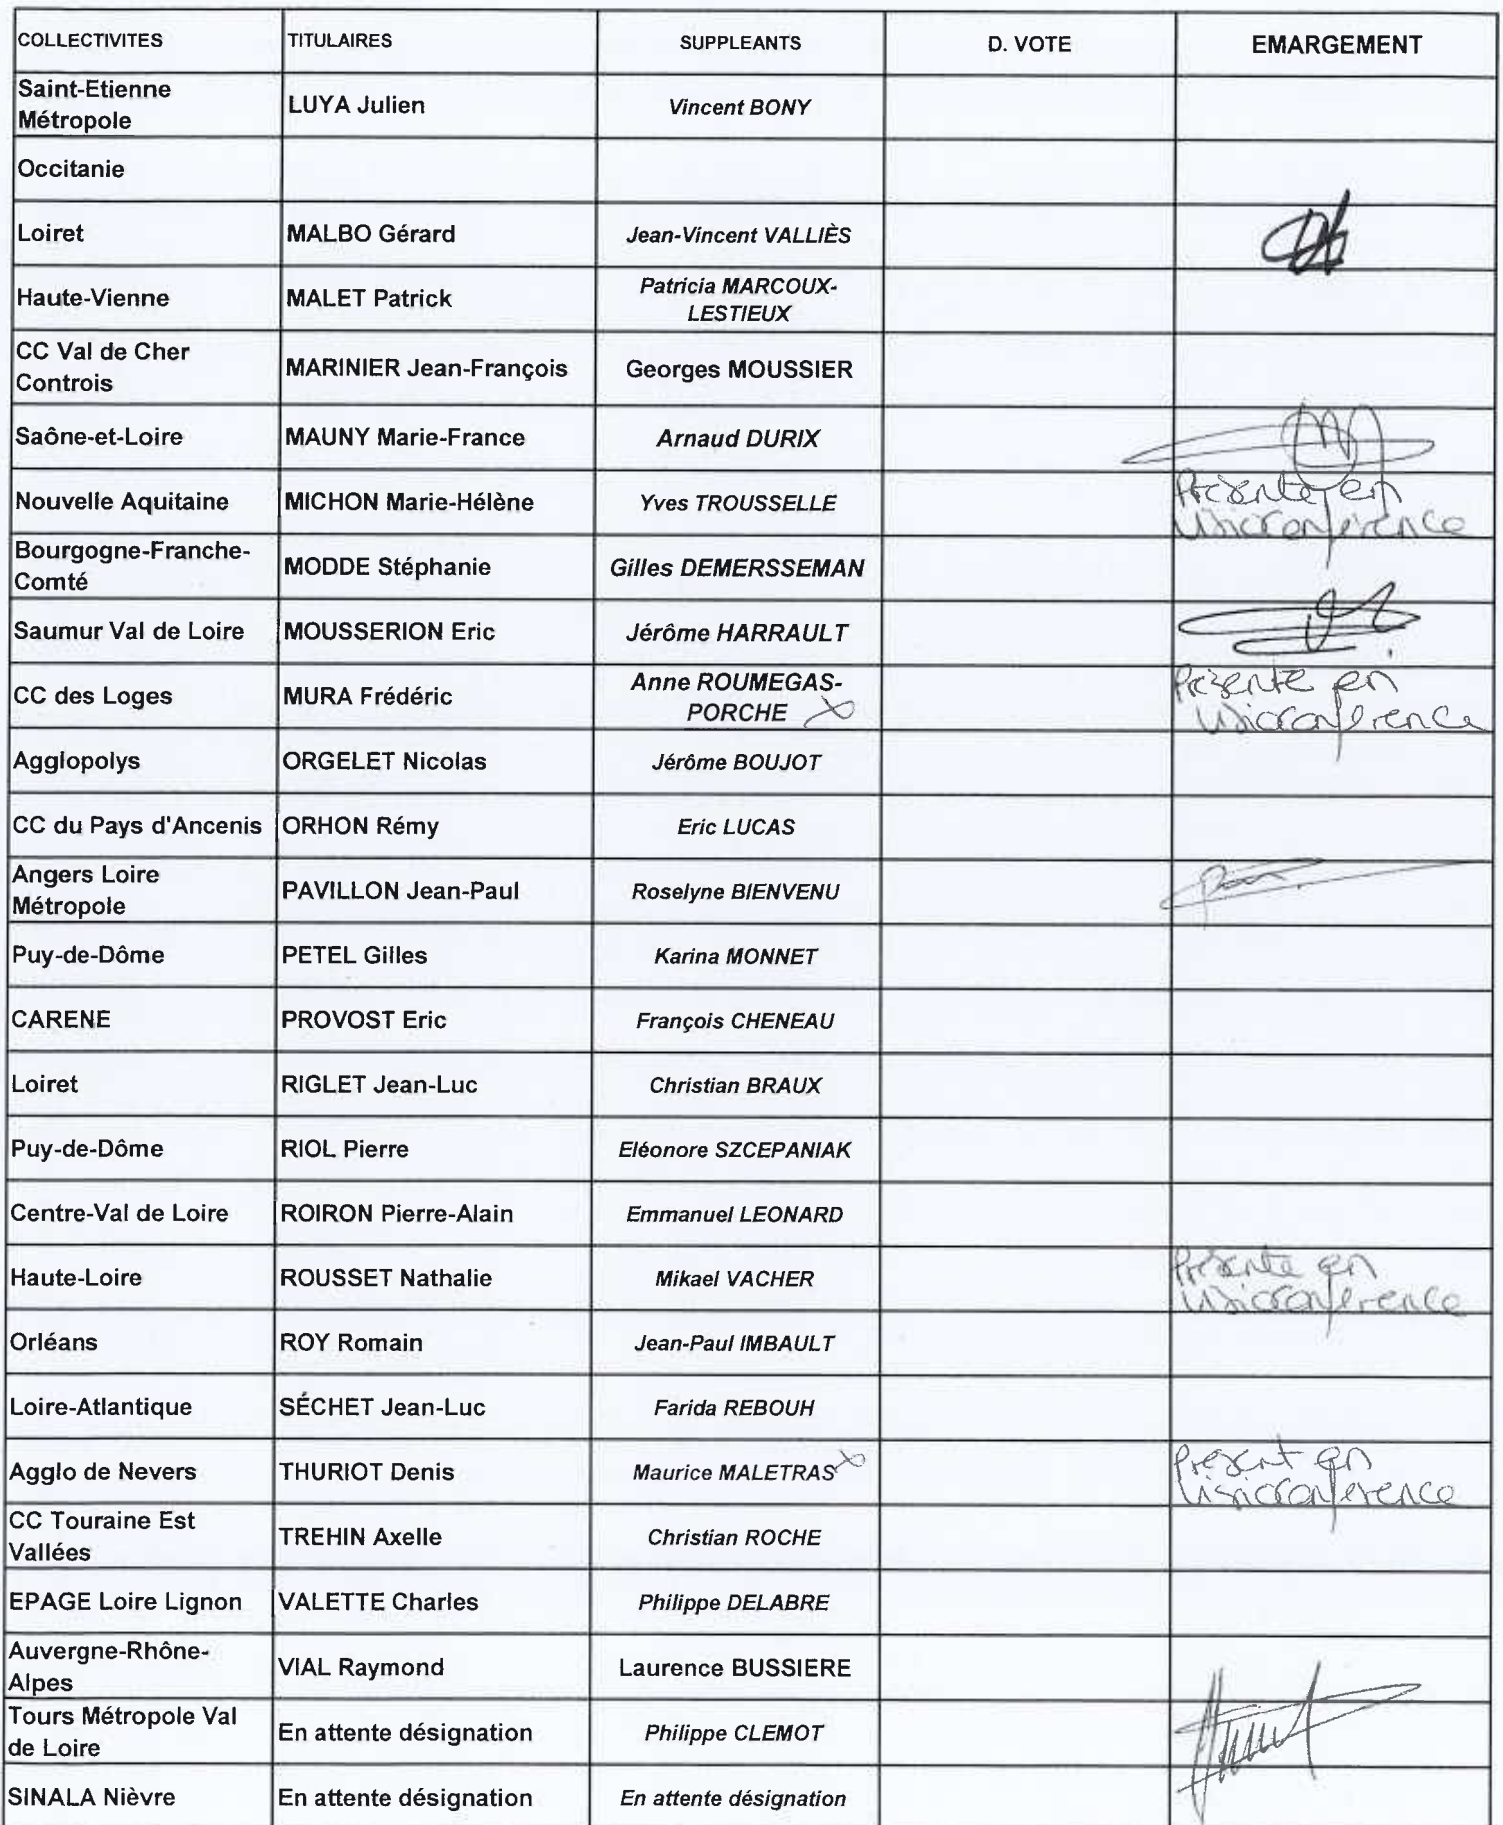 COLLECTIVITES TITULAIRES SUPPLEANTS D. VOTE EMARGEMENT
Saint-Etienne
Métropole
LUYA Julien Vincent BONY
Occitanie
Loiret MALBO Gérard Jean-Vincent VALLIÈS
Haute-Vienne MALET Patrick
Patricia MARCOUX-
LESTIEUX
CC Val de Cher
Controis
MARINIER Jean-François Georges MOUSSIER
Saône-et-Loire MAUNY Marie-France Arnaud DURIX
Nouvelle Aquitaine MICHON Marie-Hélène Yves TROUSSELLE
Présente en
visioconférence
Bourgogne-Franche-
Comté
MODDE Stéphanie Gilles DEMERSSEMAN
Saumur Val de Loire MOUSSERION Eric Jérôme HARRAULT
CC des Loges MURA Frédéric
Anne ROUMEGAS-
PORCHE
Présente en
visioconférence
Agglopolys ORGELET Nicolas Jérôme BOUJOT
CC du Pays d'Ancenis ORHON Rémy Eric LUCAS
Angers Loire
Métropole
PAVILLON Jean-Paul Roselyne BIENVENU
Puy-de-Dôme PETEL Gilles Karina MONNET
CARENE PROVOST Eric François CHENEAU
Loiret RIGLET Jean-Luc Christian BRAUX
Puy-de-Dôme RIOL Pierre Eléonore SZCEPANIAK
Centre-Val de Loire ROIRON Pierre-Alain Emmanuel LEONARD
Haute-Loire ROUSSET Nathalie Mikael VACHER
Présente en
visioconférence
Orléans ROY Romain Jean-Paul IMBAULT
Loire-Atlantique SÉCHET Jean-Luc Farida REBOUH
Agglo de Nevers THURIOT Denis Maurice MALETRAS
Présent en
visioconférence
CC Touraine Est
Vallées
TREHIN Axelle Christian ROCHE
EPAGE Loire Lignon VALETTE Charles Philippe DELABRE
Auvergne-Rhône-
Alpes
VIAL Raymond Laurence BUSSIERE
Tours Métropole Val
de Loire
En attente désignation Philippe CLEMOT
SINALA Nièvre En attente désignation En attente désignation